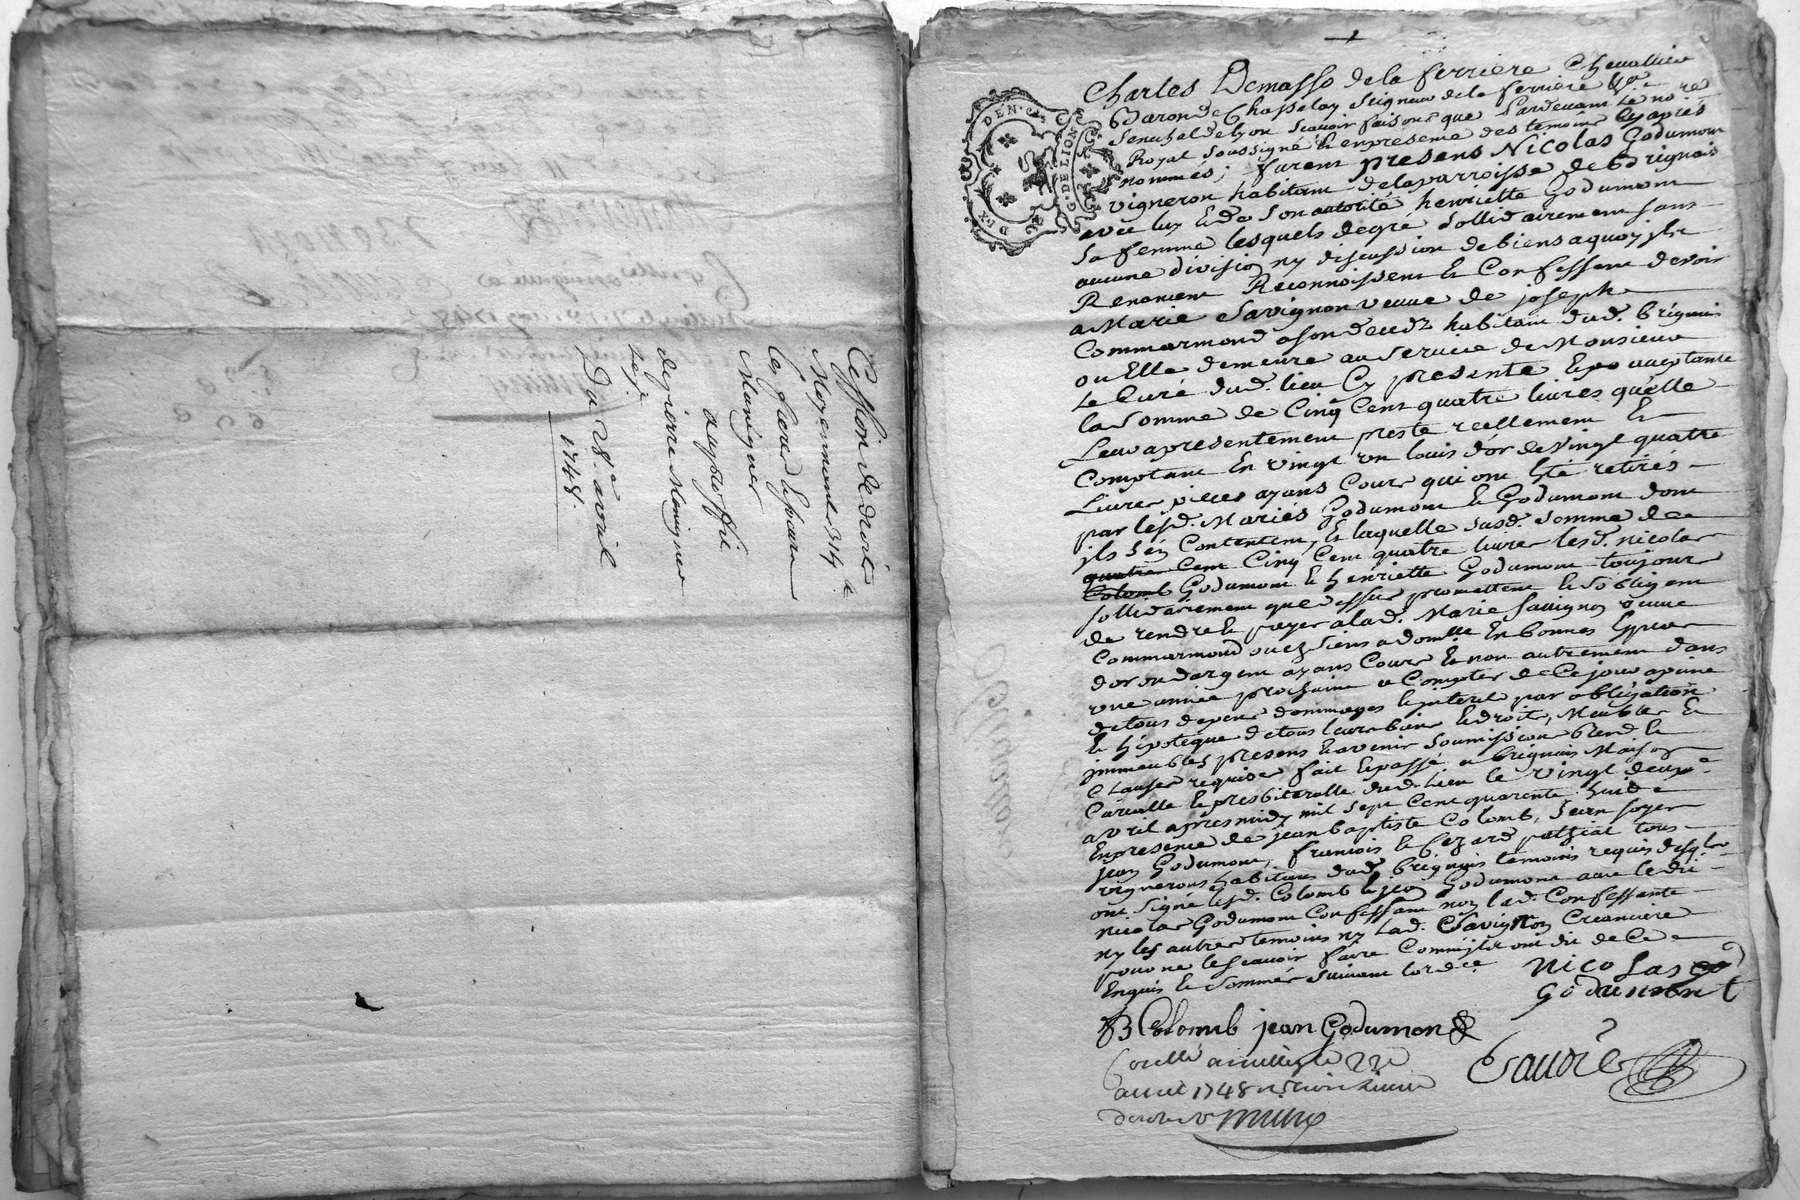 Cession de droits
Moyennant 314 l.
les freres Espoux
Marniquet
au proffit
de pierre Marniquet
Du 28.e avril
1748.
DEN. Ces
G. DE LION
DEX
Charles Demasso de la ferriere Chevallier
Baron de Chasselay Seigneur de la ferriere &a.
Senechal de Lyon scavoir faisons que Pardevant le no.re
Royal soussigné & en presence des temoins cy apres
nommés; furent presens Nicolas Godumont
vigneron habitant de la parroisse de Brignais
avec luy & de son autorité henriette Godumont
sa femme lesquels de gré sollidairement sans
aucune division ny discussion de biens a quoy ils
Renoncent Reconnoissent & Confessent devoir
a Marie Savignon veuve de joseph
Commarmond a son deceds habitant dud. brignais
ou Elle demeure au service de Monsieur
le Curé dud. lieu Cy presente & acceptante
la somme de Cinq Cent quatre livres quelle
Leur a presentement presté reellement Et
Comptant En vingt un louis d'or de vingt quatre
Livres pieces ayans Cours qui ont Esté retirés
par lesd. Mariés Godumont & Godumont dont
ils sen Contentent, & laquelle susd. somme de
quatre Cent Cinq Cent quatre livres lesd. nicolas
Colomb Godumont & henriette Godumont toujours
sollidairement que dessus promettent & sobligent
de rendre & payer a lad. Marie Savignon veuve
Commarmond ou es siens a domille En bonnes Especes
dor ou dargent ayans Cours & non autrement dans
une année prochaine a Compter de Ce jour a peine
de tous depens dommages & interets par obligation
& hipoteque de tous leurs biens & droits, Meubles &
immeubles presens & avenir soumission rend. &
Clauses requises fait & passé a brignais Maison
Curialle & presbiteralle dud. Lieu le vingt deux e
avril apres midy mil sept Cent quarente huit
En presence de jean baptiste Colomb, jean
jean Godumont, francois tous
vignerons habitans dud. brignais temoins requis desquels
ont signé lesd. Colomb & jean Godumont avec ledit
nicolas Godumont Confessant non lad. Confessante
ny les autres temoins ny Lad. Savignon Creanciere
pour ne le scavoir faire Comm'ils ont dit de Ce
Enquis & sommés suivant lord.ce
Nicolas go
godumont
JB Colomb jean Godumond
le 22e
avril 1748